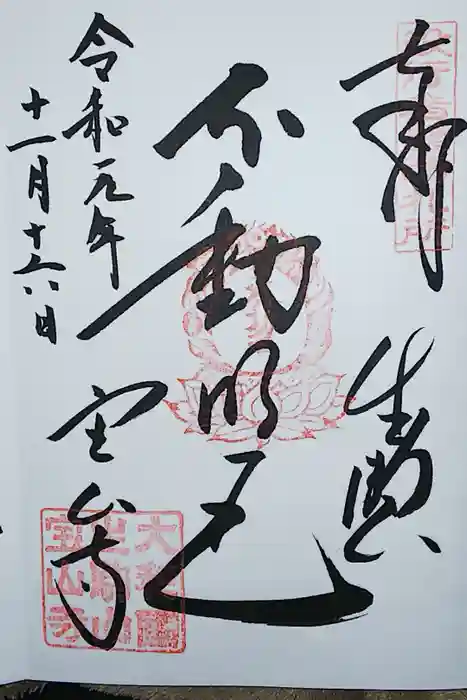 奉
不動明王
令和元年
十一月十六日
宝山寺
大和國
生駒山
宝山寺